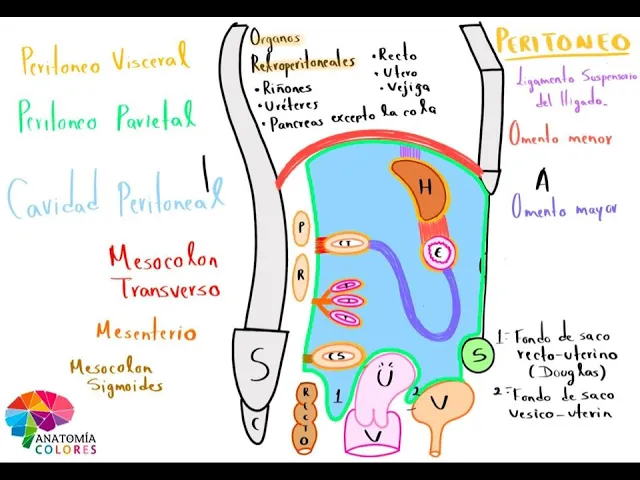 PERITONEO
Peritoneo Visceral
Peritoneo Parietal
Cavidad Peritoneal
Mesocolon
Transverso
Mesenterio
Mesocolon
Sigmoides
Organos
Retroperitoneales
• Riñones
• Uréteres
• Pancreas excepto la cola
• Recto
• Utero
• Vejiga
Ligamento Suspensorio
del Higado
Omento menor
A
Omento mayor
H
P
CT
E
R
I
I
I
CS
S
S
C
RECTO
1
Ü
V
2
V
1= Fondo de saco
recto-uterino
(Douglas)
2= Fondo de saco
vesico-uterin
ANATOMÍA
COLORES